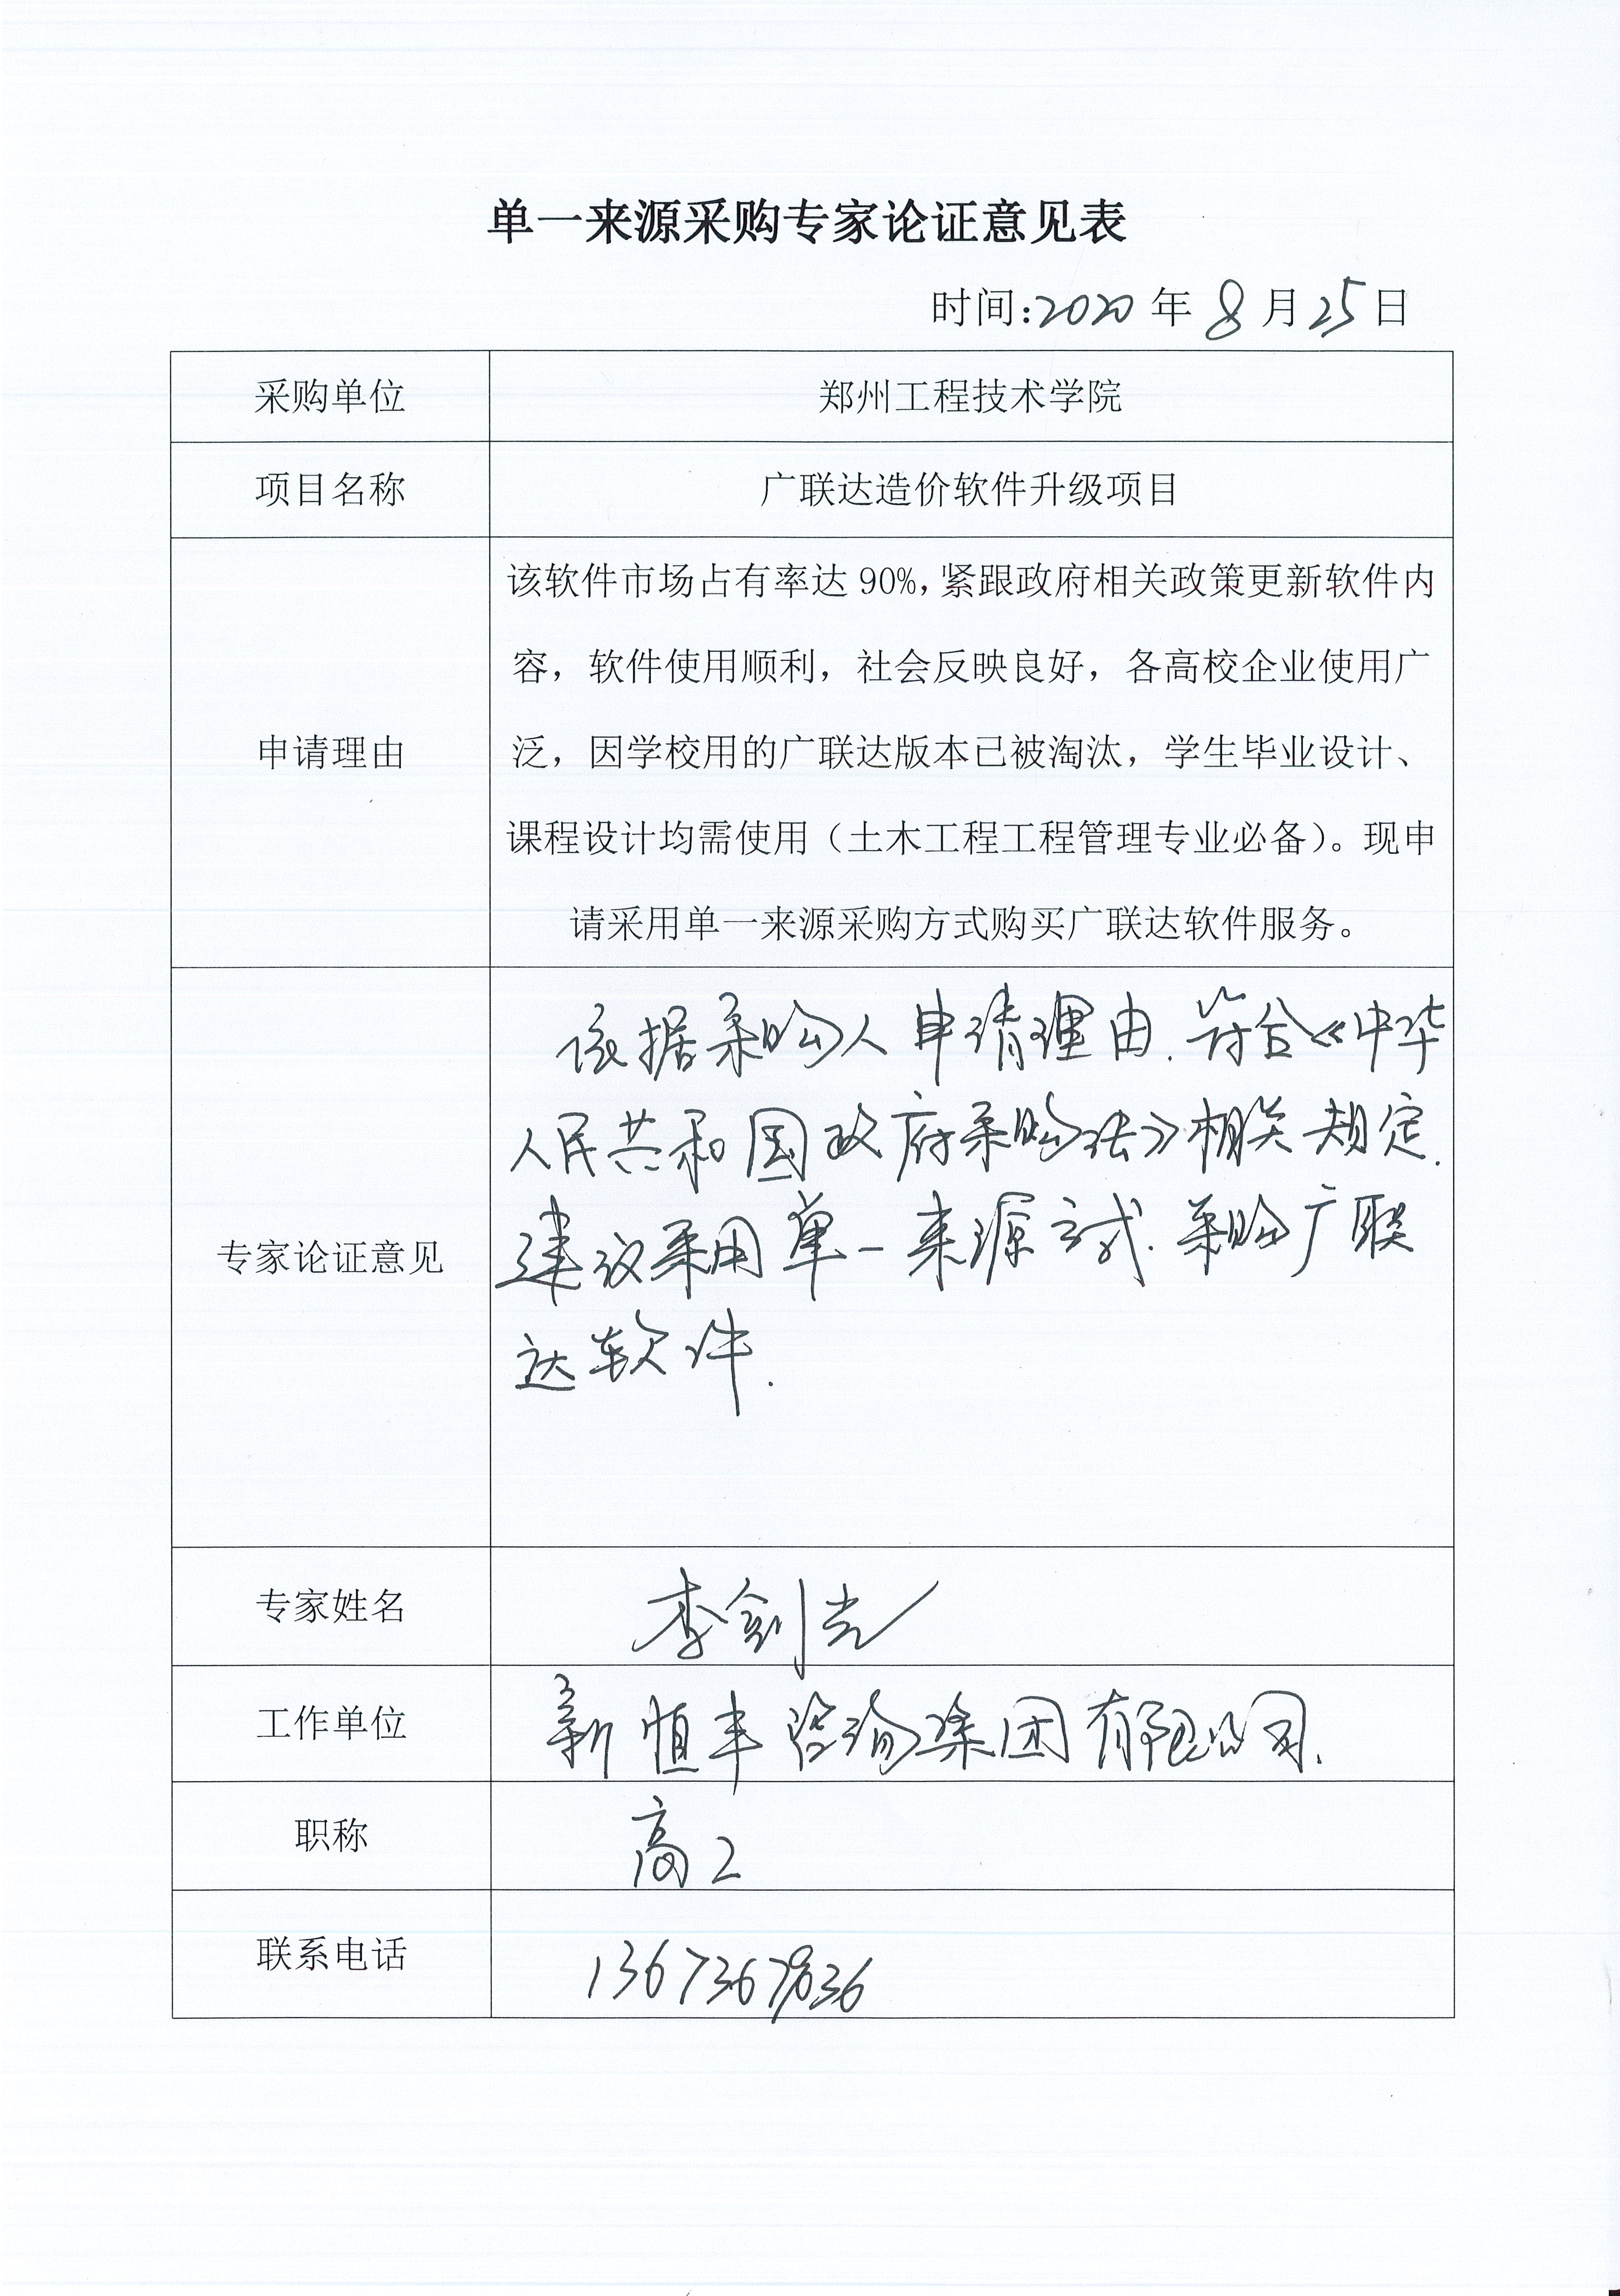 单一来源采购专家论证意见表
时间:2020年8月25日
采购单位
郑州工程技术学院
项目名称
广联达造价软件升级项目
申请理由
该软件市场占有率达90%,紧跟政府相关政策更新软件内
容，软件使用顺利，社会反映良好，各高校企业使用广
泛，因学校用的广联达版本已被淘汰，学生毕业设计、
课程设计均需使用（土木工程工程管理专业必备）。现申
请采用单一来源采购方式购买广联达软件服务。
专家论证意见
依据采购人申请理由.符合《中华
人民共和国政府采购法》相关规定.
建议采用单一来源方式.采购广联
达软件.
专家姓名
李剑光
工作单位
新恒丰咨询集团有限公司.
职称
高工
联系电话